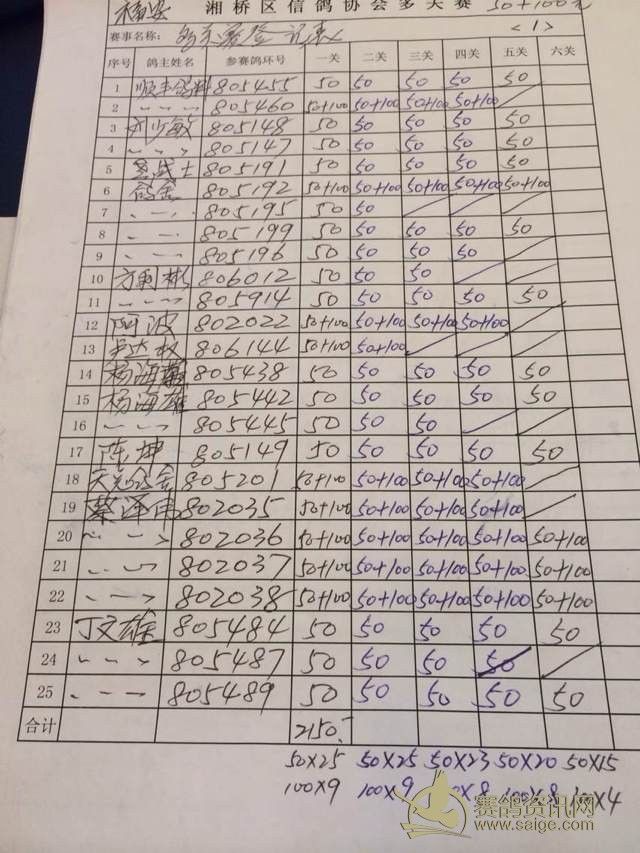 湘桥区信鸽协会多关赛 50+100元
赛事名称: 多关赛签记表 <1>
序号 鸽主姓名 参赛鸽环号 一关 二关 三关 四关 五关 六关
1 顺丰鸽料 805455 50 50 50 50 50
2 〃 805460 50+100 50+100 50+100 50+100 /
3 刘少敏 805148 50 50 50 50 50
4 〃 805147 50 50 50 50 50
5 武士 805191 50 50 50 50 50
6 鸽舍 805192 50+100 50+100 50+100 50+100 50+100
7 〃 805195 50 50 / / /
8 〃 805199 50 50 50 50 50
9 〃 805196 50 50 50 50 /
10 方彬 806012 50 50 50 / /
11 〃 805914 50 50 50 50 50
12 阿波 802022 50+100 50+100 50+100 50+100 /
13 806144 50+100 50+100 / / /
14 杨海 805438 50 50 50 50 50
15 杨海雄 805442 50 50 50 50 50
16 〃 805445 50 50 50 / /
17 陈坤 805149 50 50 50 50 50
18 天 鸽舍 805201 50+100 50+100 50+100 50+100 /
19 蔡泽伟 802035 50+100 50+100 50+100 50+100 /
20 〃 802036 50+100 50+100 50+100 50+100 50+100
21 〃 802037 50+100 50+100 50+100 50+100 50+100
22 〃 802038 50+100 50+100 50+100 50+100 50+100
23 丁文雄 805484 50 50 50 50 50
24 〃 805487 50 50 50 50 /
25 〃 805489 50 50 50 50 50
合计 2150.-
50×25 50×25 50×23 50×20 50×15
100×9 100×9 100×8 100×8 100×4
赛鸽资讯网
www.saige.com